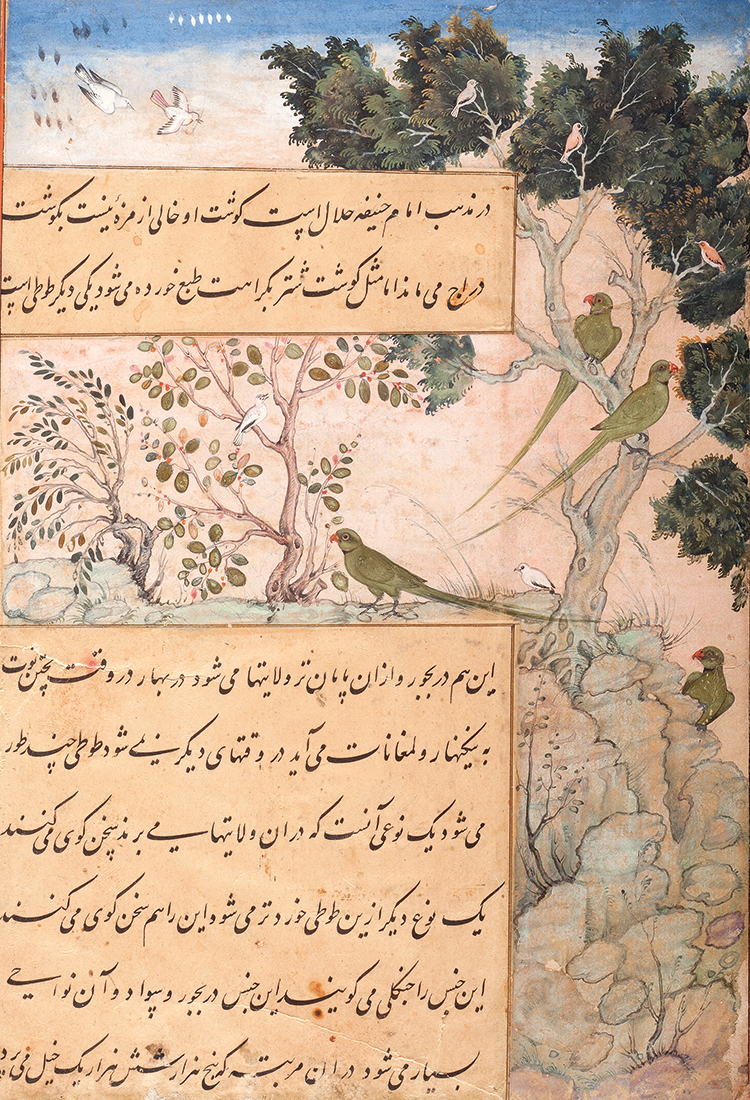 در مذهب امام حنیفه حلال است گوشت او خالی از مزهٔ نیست بگوشت
دراج می ماند اما مثل گوشت شتر بکراهت طبع خورده می شود یکی دیگر طوطی است
این هم در بجور و ازان پایان تر ولایتها می شود در بهار در وقت پختن توت
به نیکنهار و لمغانات می آید در وقتهای دیگر نمی شود طوطی چند طور
می شود یک نوعی آنست که در ان ولایتها می برند سخن کوی می کنند
یک نوع دیگر ازین طوطی خورد تر می شود این را هم سخن کوی می کنند
این جنس را جنکلی می کویند این جنس در بجور و سواد و آن نواحی
بسیار می شود در ان مرتبه که پنج هزار شش هزار یک خیل می پرد